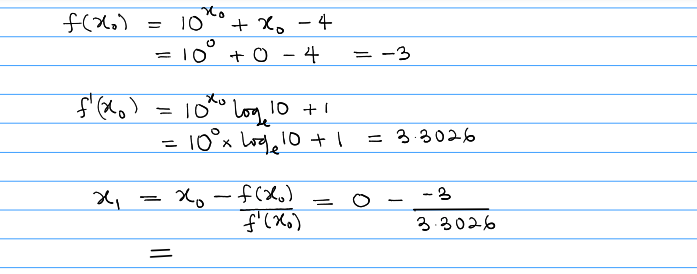 f(x₀) = 10^x₀ + x₀ - 4
= 10⁰ + 0 - 4 = -3
f'(x₀) = 10^x₀ logₑ10 + 1
= 10⁰ × logₑ10 + 1 = 3.3026
x₁ = x₀ - f(x₀)/f'(x₀) = 0 - -3/3.3026
=